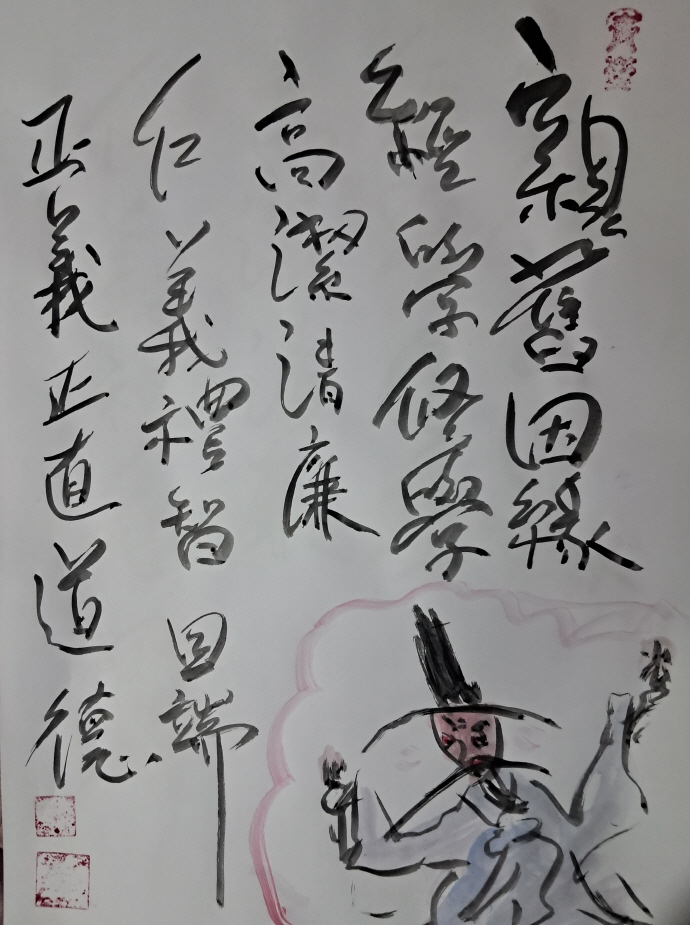 親舊因緣
學修學
高潔清廉
仁義禮智 四端
正義正直道德